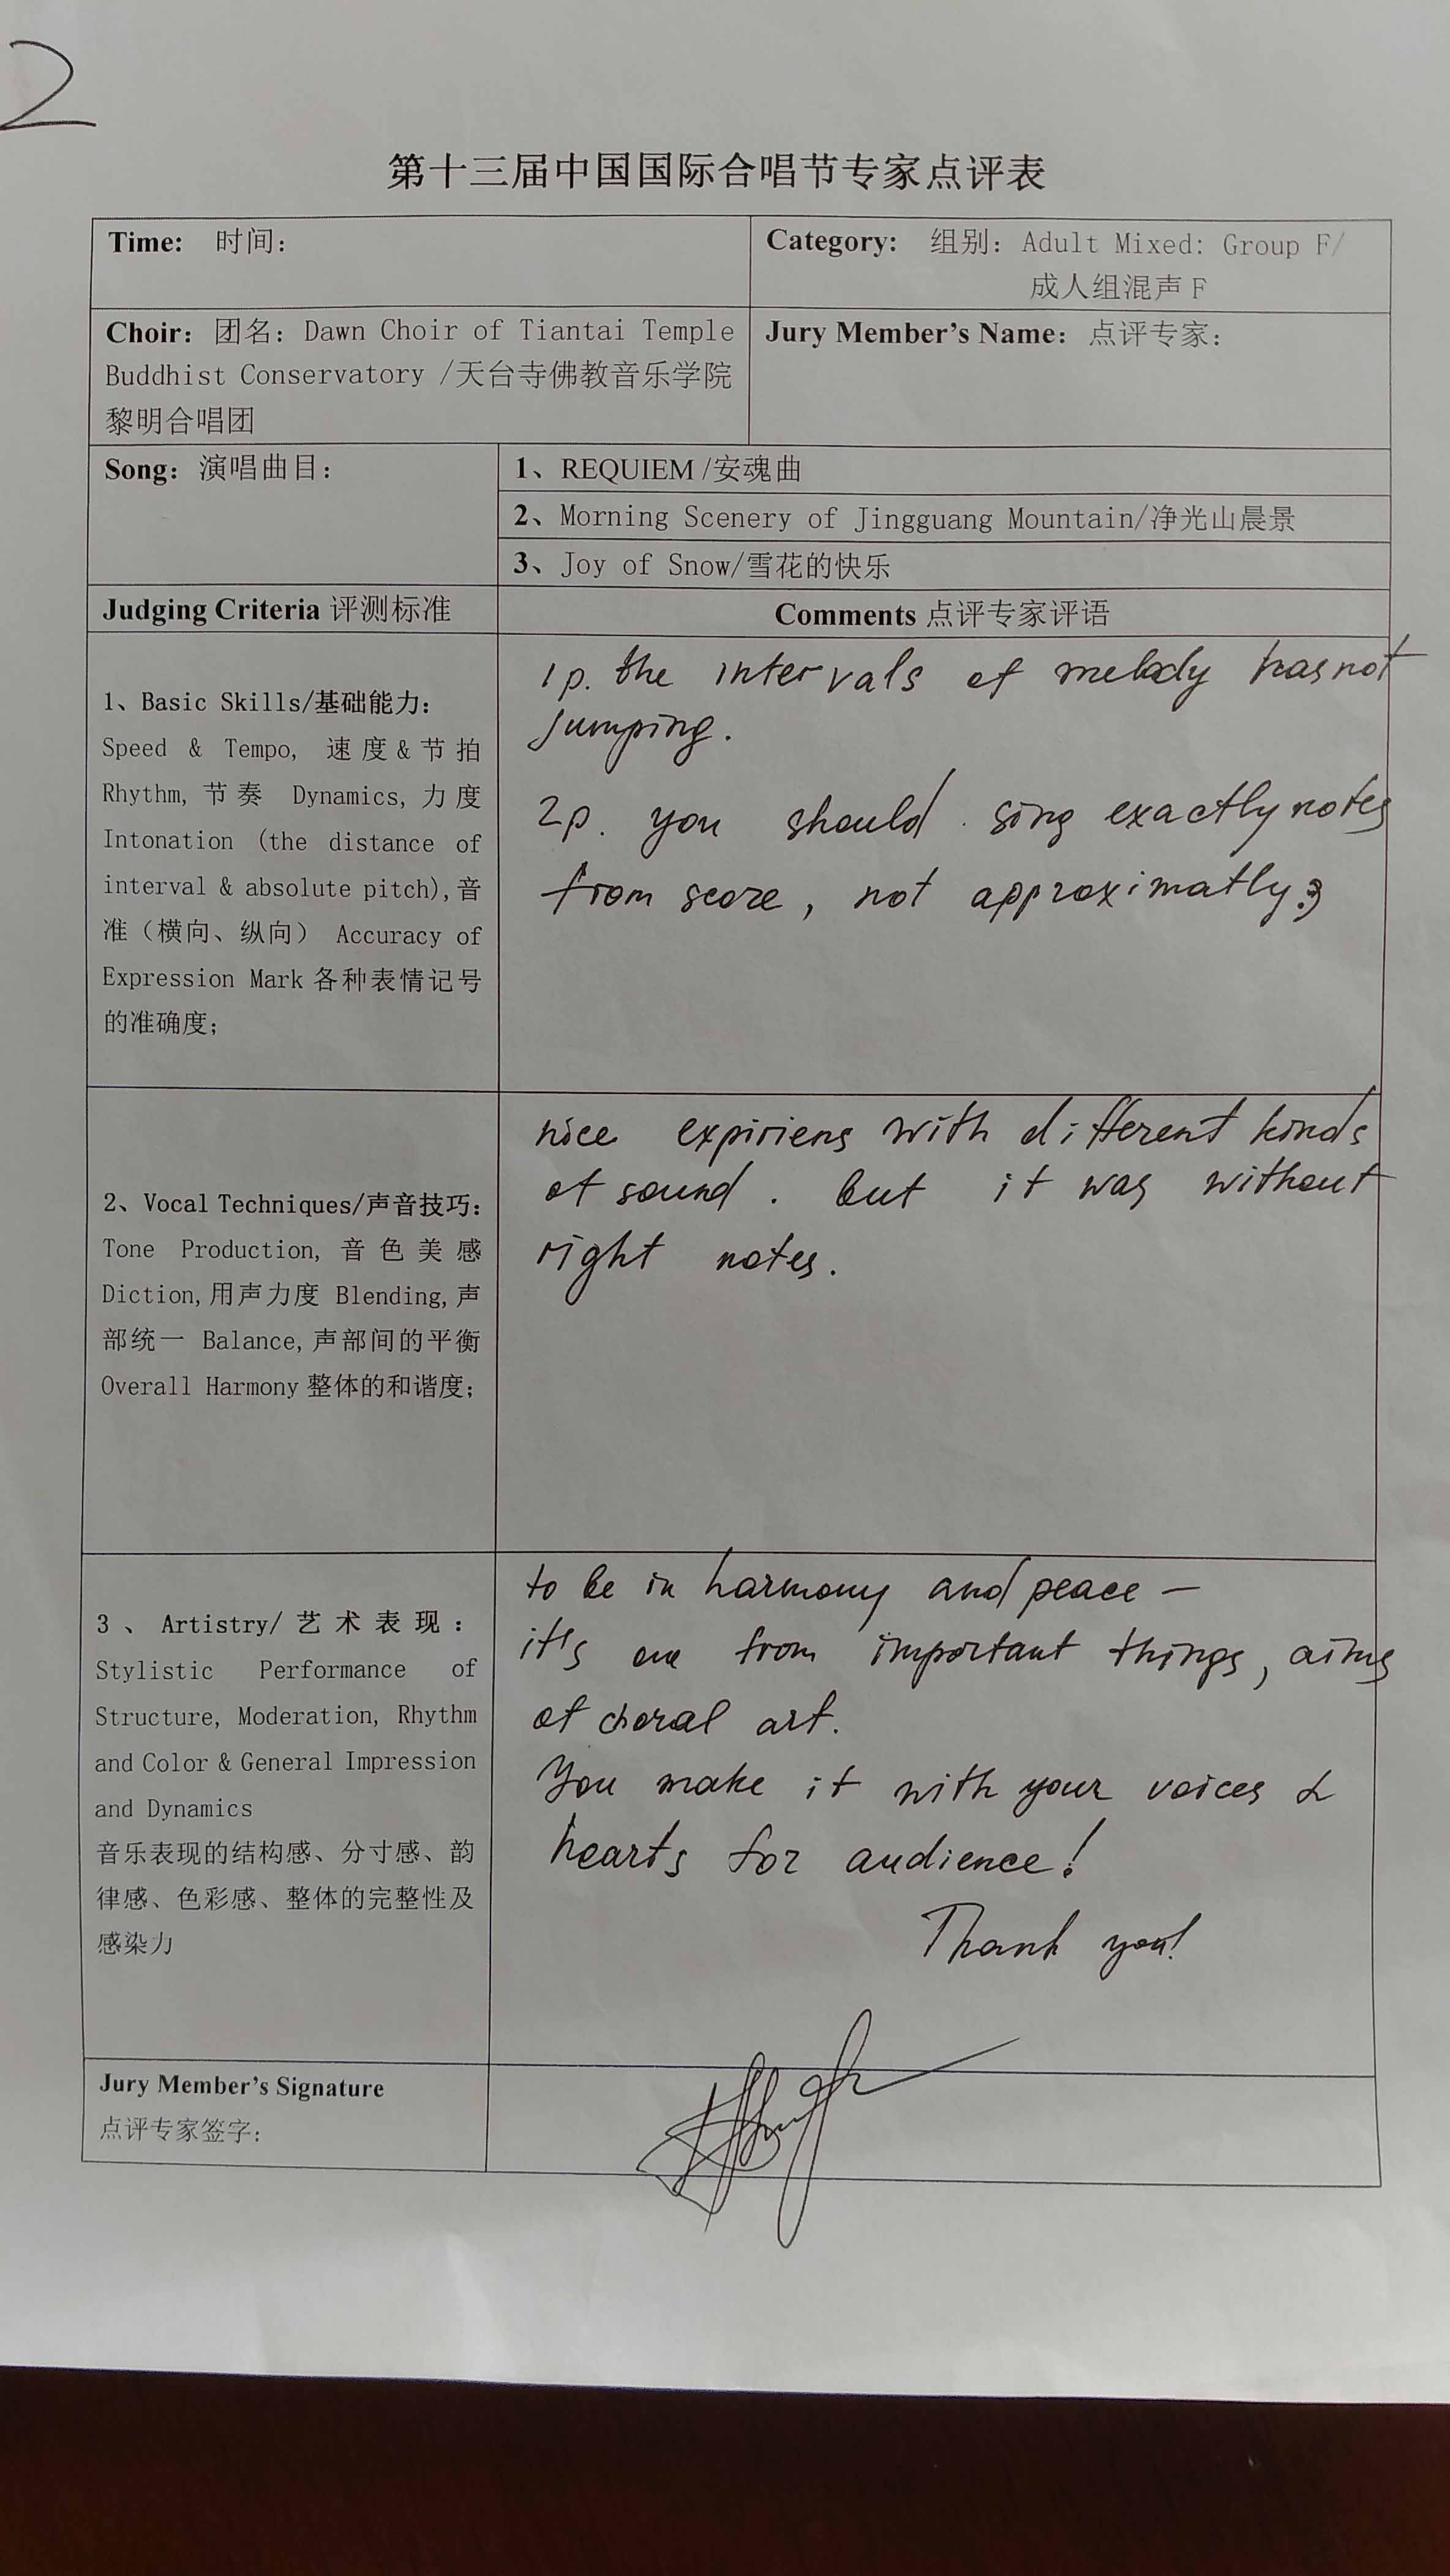 2
第十三届中国国际合唱节专家点评表
Time: 时间：
Category: 组别：Adult Mixed: Group F/
成人组混声 F
Choir：团名：Dawn Choir of Tiantai Temple
Buddhist Conservatory /天台寺佛教音乐学院
黎明合唱团
Jury Member’s Name：点评专家：
Song：演唱曲目：
1、REQUIEM /安魂曲
2、Morning Scenery of Jingguang Mountain/净光山晨景
3、Joy of Snow/雪花的快乐
Judging Criteria 评测标准
Comments 点评专家评语
1、Basic Skills/基础能力：
Speed & Tempo, 速度&节拍
Rhythm, 节奏 Dynamics, 力度
Intonation (the distance of
interval & absolute pitch), 音
准（横向、纵向） Accuracy of
Expression Mark 各种表情记号
的准确度；
1p. the intervals of melody has not
jumping.
2p. you should sing exactly notes
from score, not approximatly.
2、Vocal Techniques/声音技巧：
Tone Production, 音色美感
Diction, 用声力度 Blending, 声
部统一 Balance, 声部间的平衡
Overall Harmony 整体的和谐度；
nice expiriens with different kinds
of sound. but it was without
right notes.
3、Artistry/艺术表现：
Stylistic Performance of
Structure, Moderation, Rhythm
and Color & General Impression
and Dynamics
音乐表现的结构感、分寸感、韵
律感、色彩感、整体的完整性及
感染力
to be in harmony and peace —
it's one from important things, aims
of choral art.
You make it with your voices &
hearts for audience!
Thank you!
Jury Member’s Signature
点评专家签字：